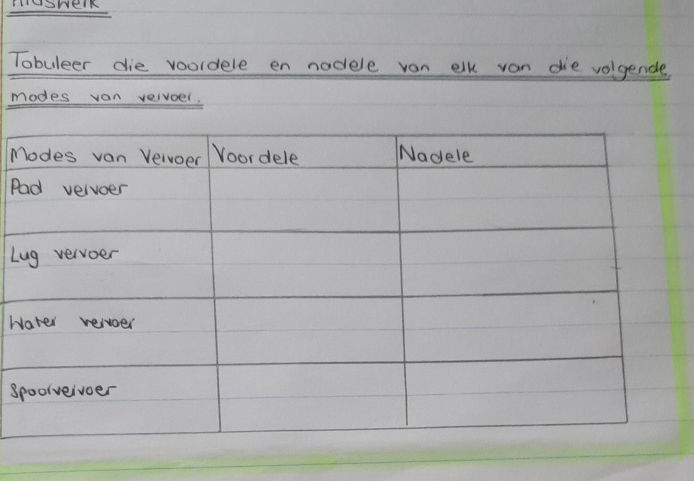 Huiswerk
Tabuleer die voordele en nadele van elk van die volgende
modes van vervoer.
Modes van Vervoer Voordele Nadele
Pad vervoer
Lug vervoer
Water vervoer
Spoorvervoer